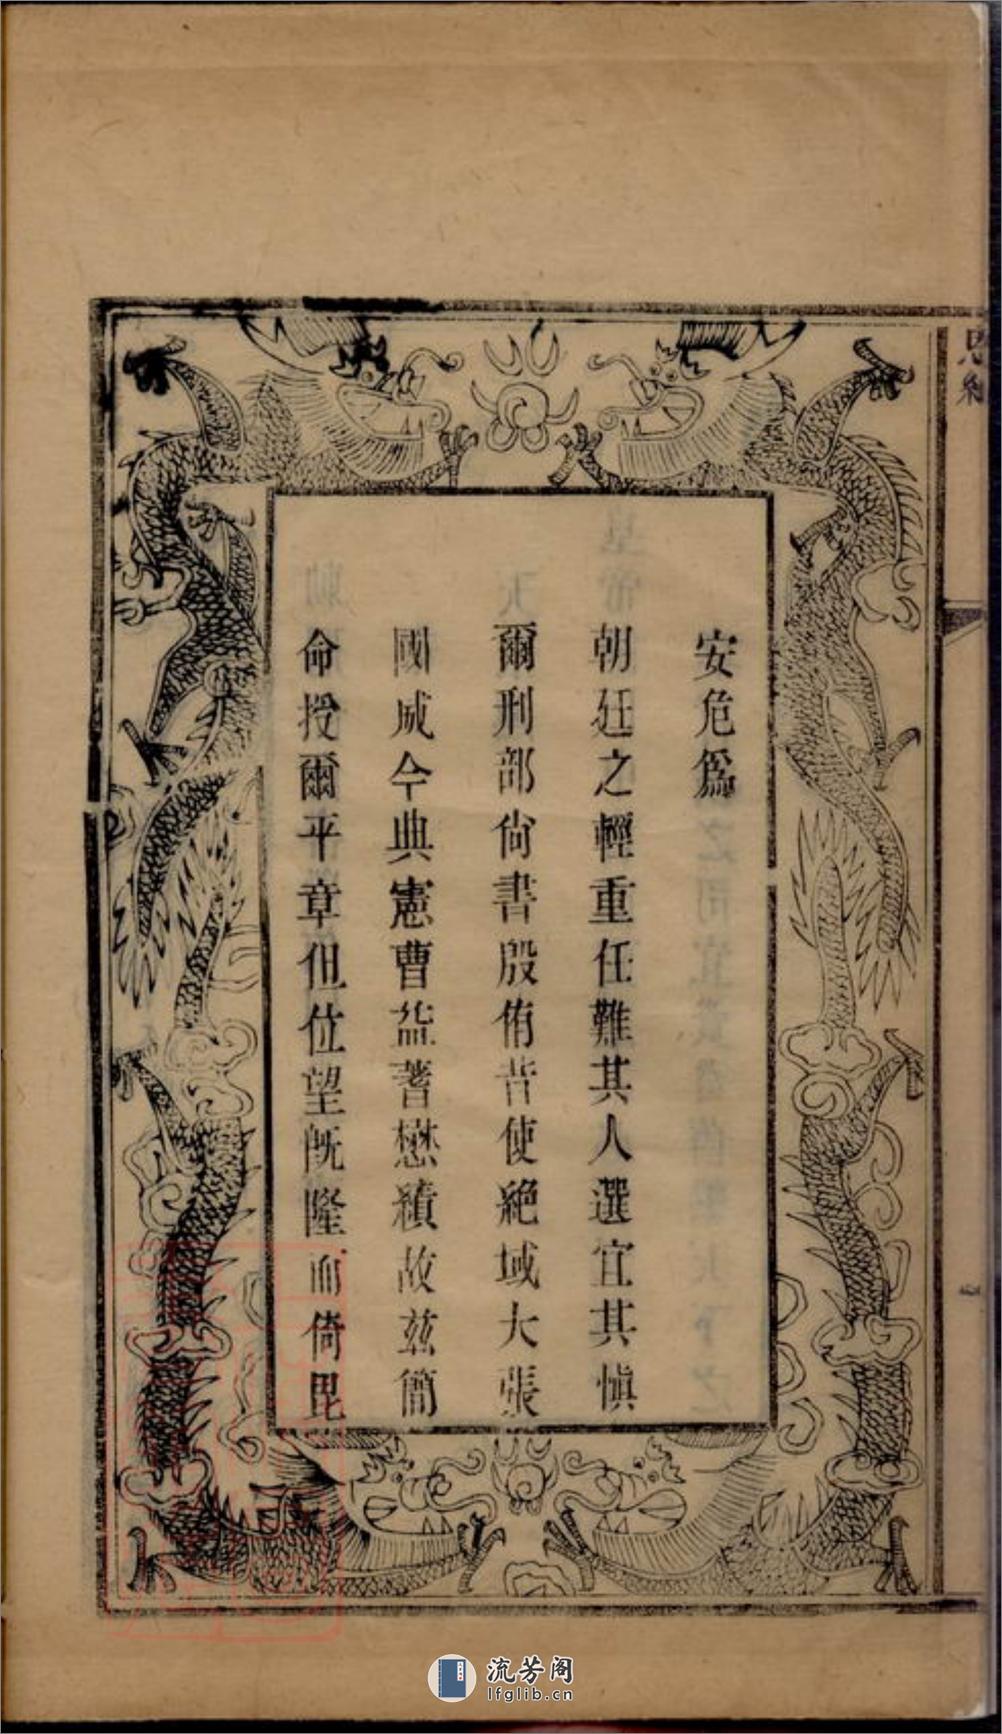 安危爲
朝廷之輕重任難其人選宜其慎
爾刑部尙書殷侑昔使絕域大張
國威今典憲曹益著懋績故茲簡
命授爾平章但位望旣隆而倚毘
流芳阁
lfglib.cn